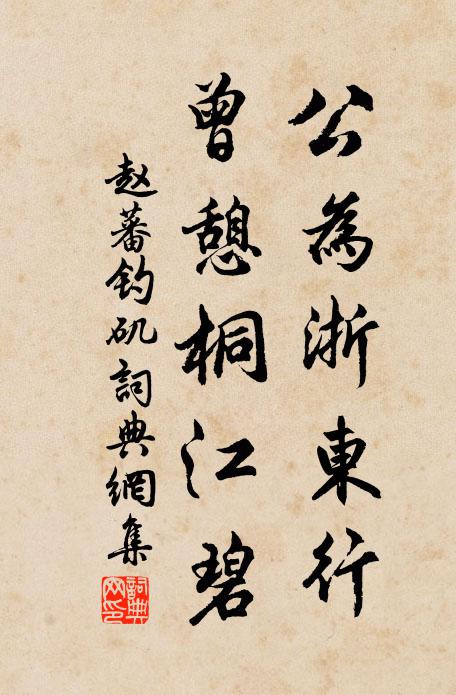 公為浙東行
曾憩桐江碧
赵蕃钓矶詞典網集
詞典网印